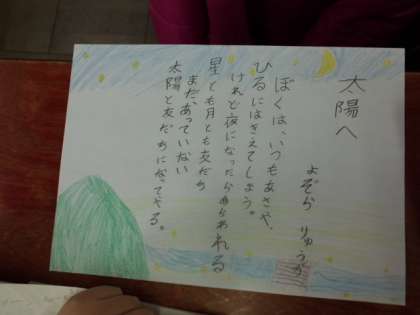 太陽へ
よぞら りゅうが
ぼくは、いつもあさや、
ひるにはきえてしまう。
けれど夜になったらあらわれる
星とも月とも友だち
まだ、あっていない
太陽と友だちになってやる。